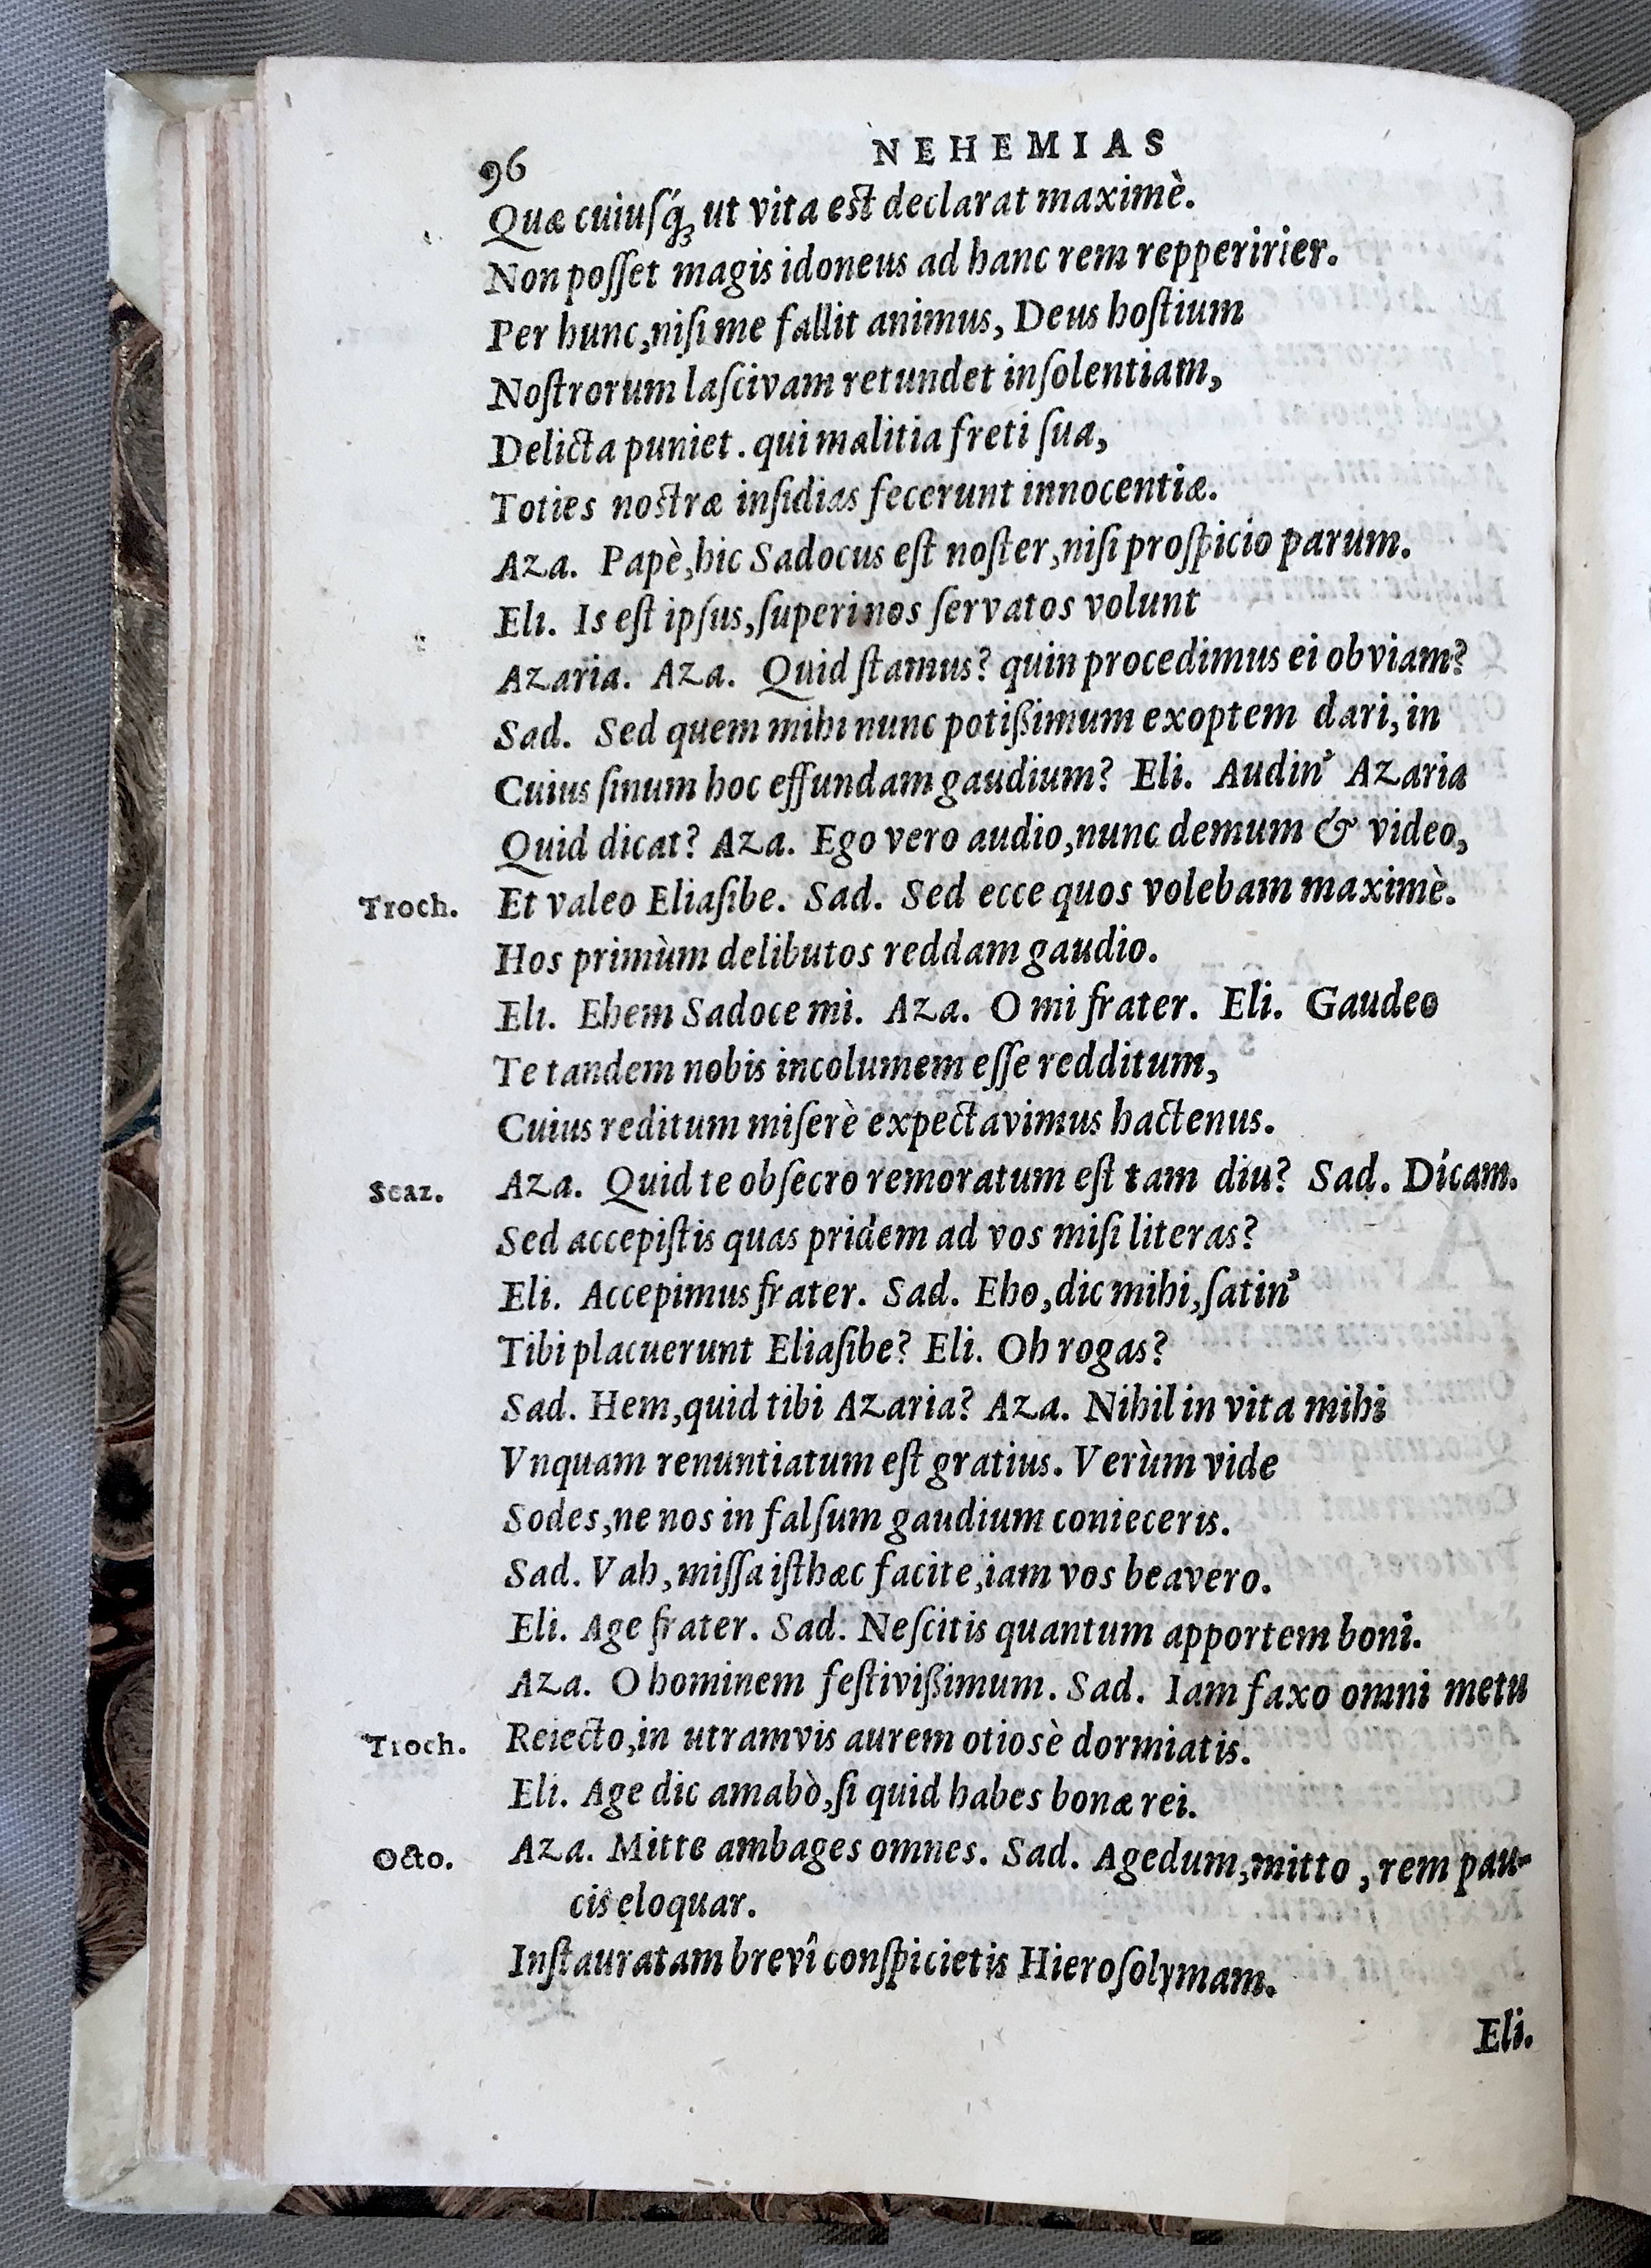 96 NEHEMIAS
Quæ cuiuſq́ꝫ ut vita est declarat maximè.
Non poſſet magis idoneus ad hanc rem repperirier.
Per hunc,niſi me fallit animus, Deus hoſtium
Noſtrorum laſcivam retundet inſolentiam,
Delicta puniet. qui malitia freti ſua,
Toties nostræ inſidias fecerunt innocentiæ.
Aza. Papè,hic Sadocus eſt noſter,niſi proſpicio parum.
Eli. Is eſt ipſus,ſuperi nos ſervatos volunt
Azaria. Aza. Quid ſtamus? quin procedimus ei obviam?
Sad. Sed quem mihi nunc potißimum exoptem dari,in
Cuius ſinum hoc effundam gaudium? Eli. Audin' Azaria
Quid dicat? Aza. Ego vero audio,nunc demum & video,
Troch. Et valeo Eliaſibe. Sad. Sed ecce quos volebam maximè.
Hos primùm delibutos reddam gaudio.
Eli. Ehem Sadoce mi. Aza. O mi frater. Eli. Gaudeo
Te tandem nobis incolumem eſſe redditum,
Cuius reditum miſerè expectavimus hactenus.
Scaz. Aza. Quid te obſecro remoratum eſt tam diu? Sad. Dicam.
Sed accepiſtis quas pridem ad vos miſi literas?
Eli. Accepimus frater. Sad. Eho,dic mihi,ſatin'
Tibi placuerunt Eliaſibe? Eli. Oh rogas?
Sad. Hem,quid tibi Azaria? Aza. Nihil in vita mihi
Vnquam renuntiatum eſt gratius. Verùm vide
Sodes,ne nos in falſum gaudium conieceris.
Sad. Vah,miſſa iſthæc facite,iam vos beavero.
Eli. Age frater. Sad. Neſcitis quantum apportem boni.
Aza. O hominem feſtivißimum. Sad. Iam faxo omni metu
Troch. Reiecto,in utramvis aurem otiosè dormiatis.
Eli. Age dic amabò,ſi quid habes bonæ rei.
Octo. Aza. Mitte ambages omnes. Sad. Agedum,mitto , rem pau-
cis eloquar.
Inſtauratam brevî conſpicietis Hieroſolymam.
Eli.